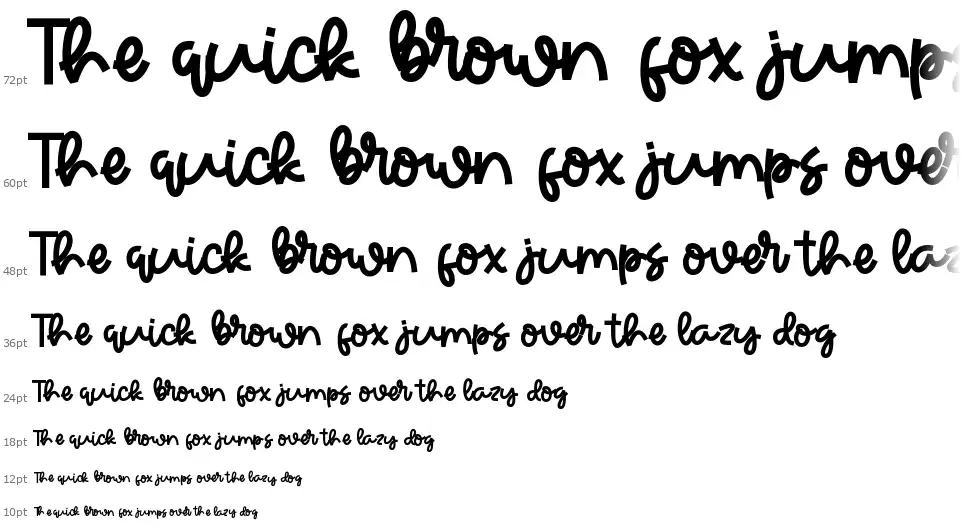 72pt The quick brown fox jumps
60pt The quick brown fox jumps over
48pt The quick brown fox jumps over the laz
36pt The quick brown fox jumps over the lazy dog
24pt The quick brown fox jumps over the lazy dog
18pt The quick brown fox jumps over the lazy dog
12pt The quick brown fox jumps over the lazy dog
10pt The quick brown fox jumps over the lazy dog